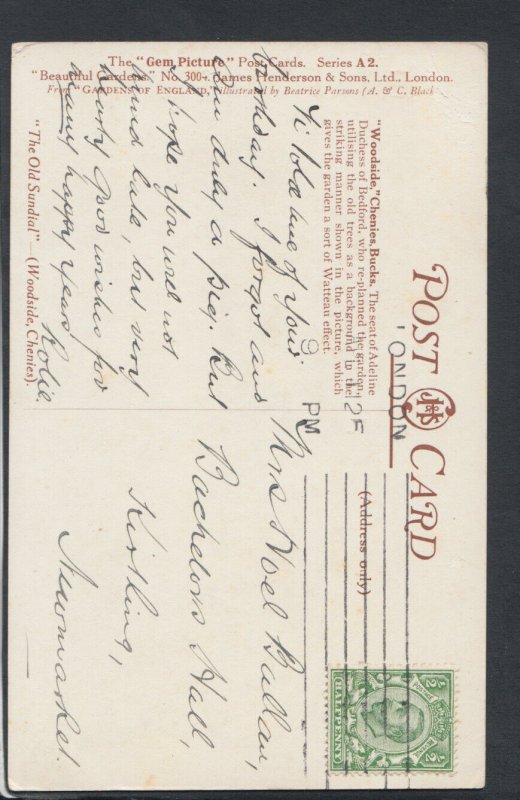 The "Gem Picture" Post Cards. Series A2.
"Beautiful Gardens." No. 300+. James Henderson & Sons, Ltd., London.
From "GARDENS OF ENGLAND," illustrated by Beatrice Parsons (A. & C. Black
POST CARD
(Address only)
"Woodside," Chenies, Bucks. The seat of Adeline
Duchess of Bedford, who re-planned the garden,
utilising the old trees as a background in the
striking manner shown in the picture, which
gives the garden a sort of Watteau effect.
"The Old Sundial"—(Woodside, Chenies).
'ONDON
PM
12
½ ½
HALFPENNY
told me of your
birthday. I forgot and
am only a pig. But
I hope you will not
mind late, but very
hearty good wishes for
many happy years
Rolie.
Mrs Noel
Bachelors Hall,
Kirtling,
Newmarket.